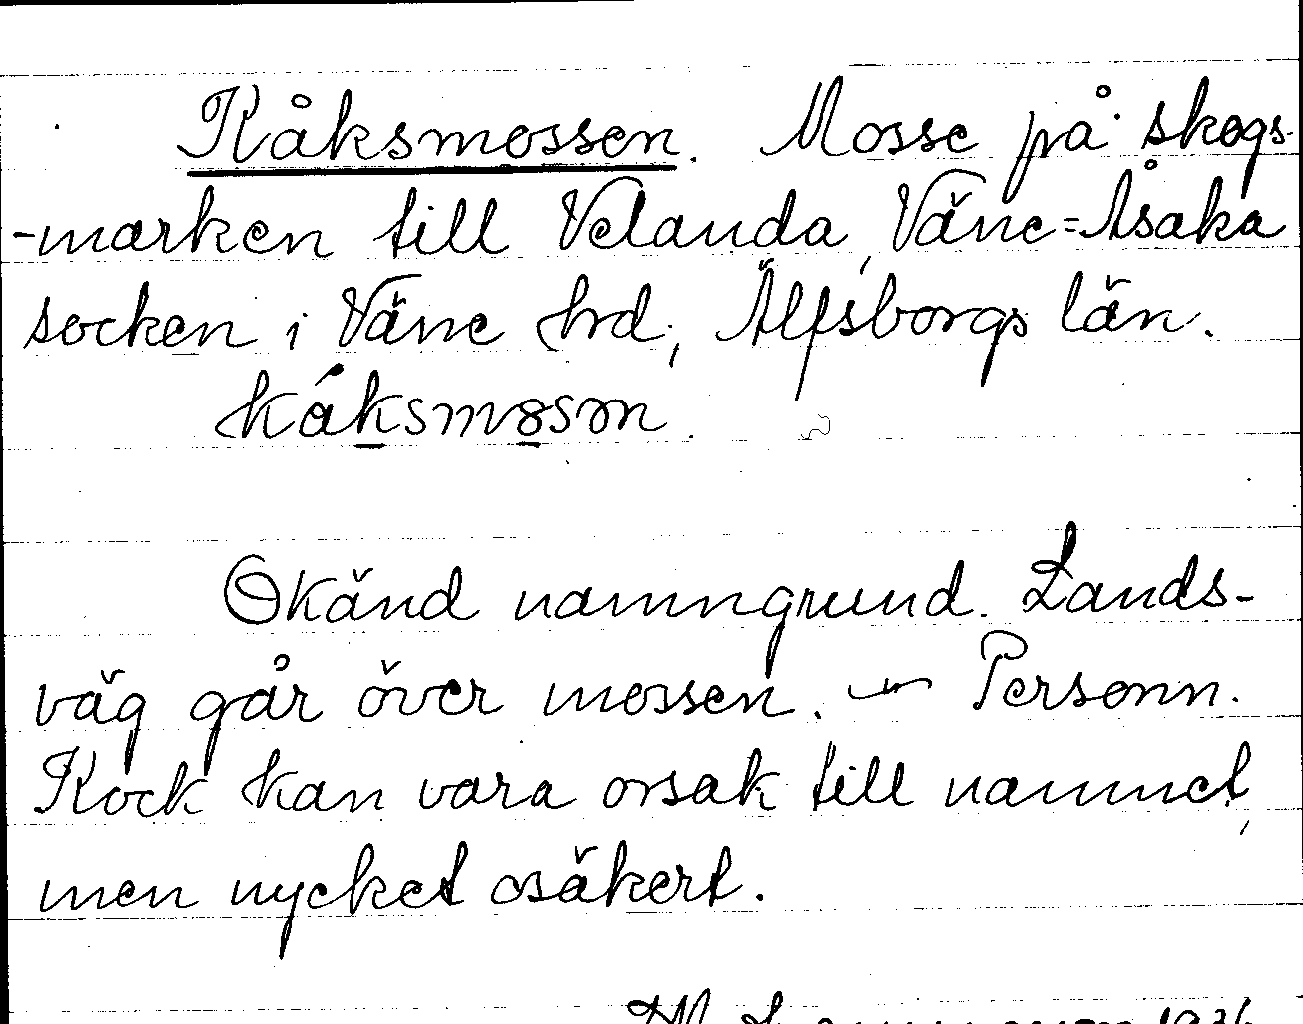 Kåksmossen. Mosse på skogs-
-marken till Velanda, Väne-Åsaka
socken i Väne hrd, Älfsborgs län.
kåksmosen.
Okänd namngrund. Lands-
väg går över mossen. — Personn.
Kock kan vara orsak till namnet,
men mycket osäkert.